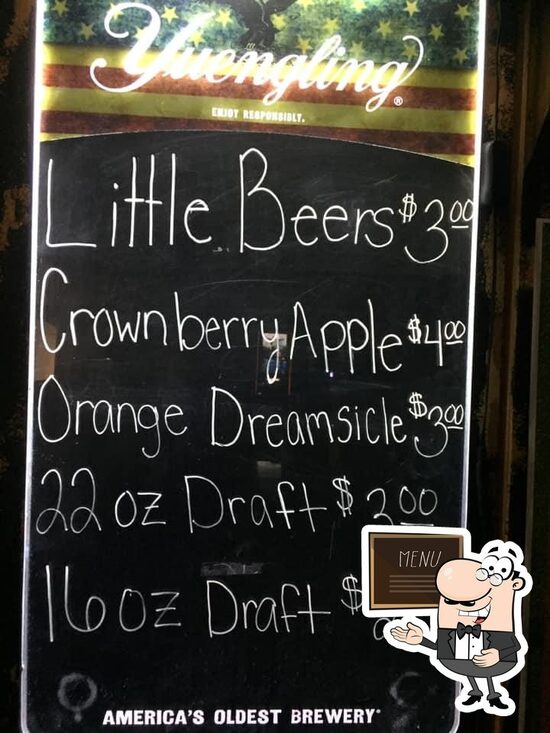 Yuengling®
ENJOY RESPONSIBLY.
Little Beers $3.00
Crownberry Apple $4.00
Orange Dreamsicle $3.00
22 oz Draft $3.00
MENU
16 oz Draft $
AMERICA'S OLDEST BREWERY®